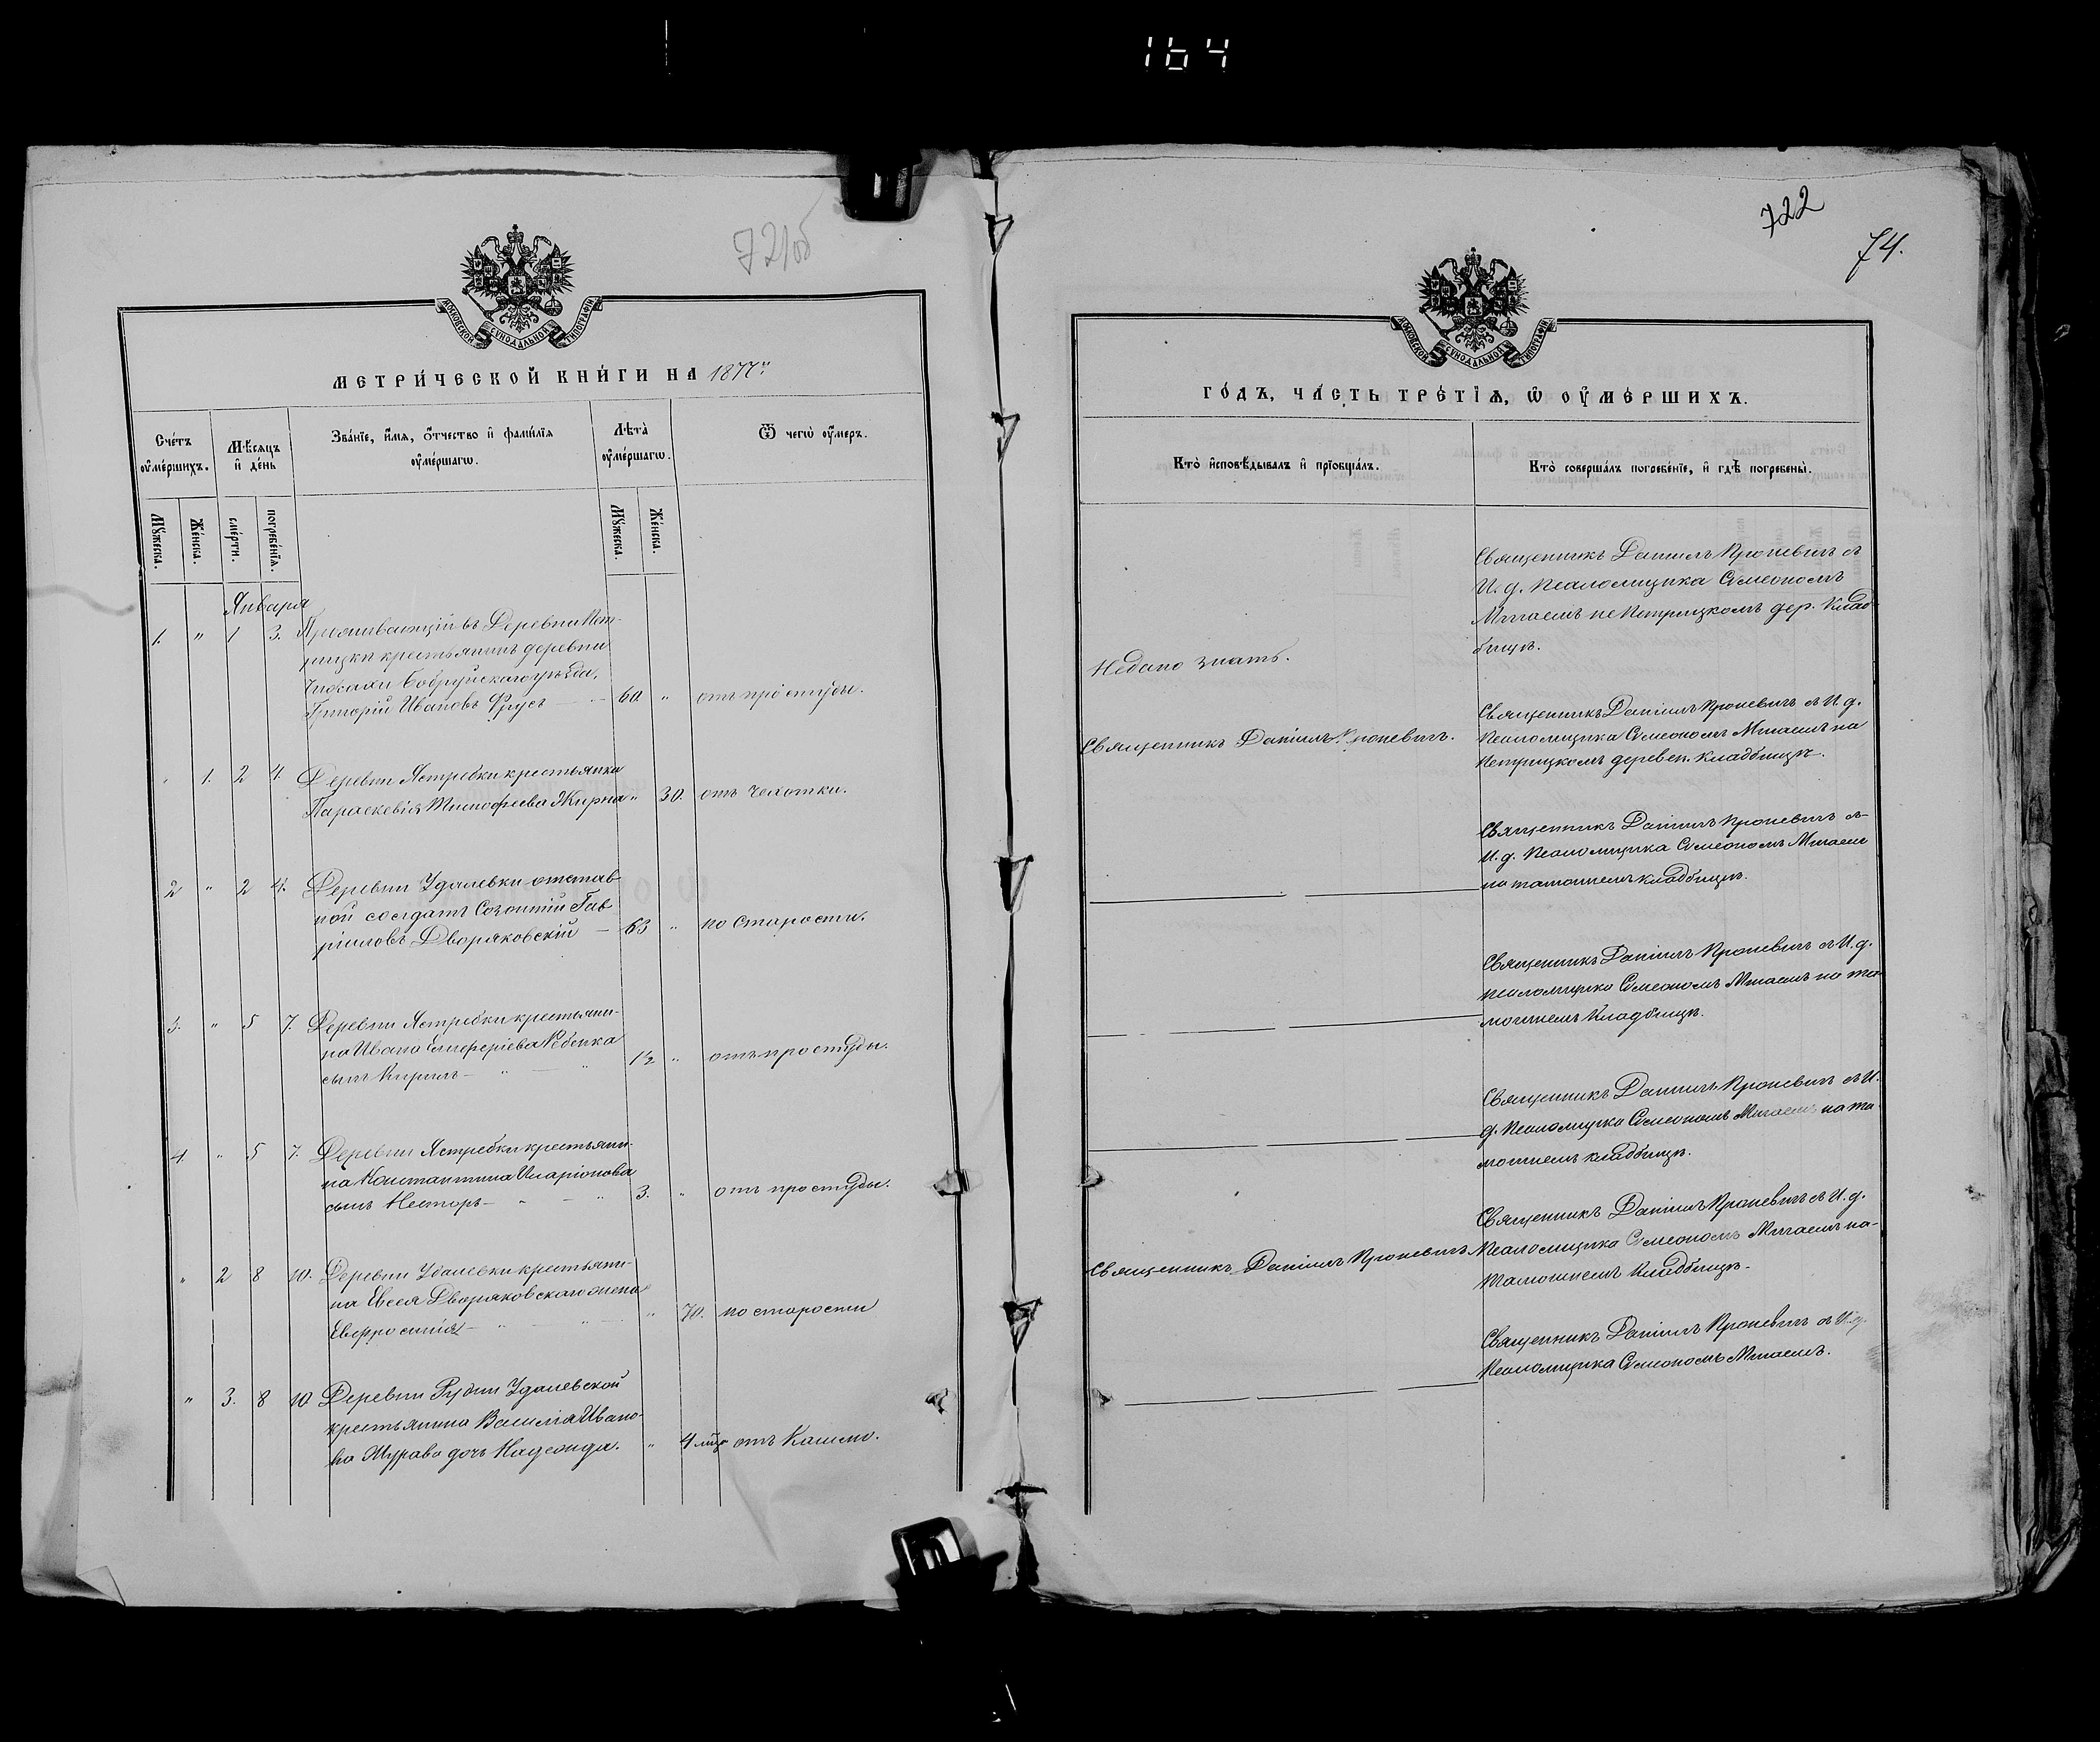 164
721об
МОСКОВСКОЙ СѴНОДАЛЬНОЙ ТИПОГРАФІИ
МЕТРИ́ЧЕСКОЙ КНИ́ГИ НА 1877й
Сче́тъ ᲂу҆ме́ршихъ.
Мѣ́сяцъ и҆ де́нь
Зва́нїе, и҆́мѧ, ѻ҆́тчество и҆ фами́лїѧ ᲂу҆ме́ршагѡ.
Лѣ́та ᲂу҆ме́ршагѡ.
Ѿ чегѡ̀ ᲂу҆́меръ.
Мꙋ́жеска.
Же́нска.
сме́рти.
погребе́нїѧ.
Мꙋ́жеска.
Же́нска.
Января
1. " 1 3. Проживающій въ Деревни Пет-
рицки крестьянинъ деревни
Бобруйскаго уѣзда,
Григорій Ивановъ Фрусъ — 60. " отъ простуды.
" 1. 2 4. Деревни Ястребки крестьянка
Параскевія Тимофеева Жирна " 30. отъ чахотки.
2 " 2 4. Деревни Удалевки отстав-
ной солдатъ Созонтій Гав-
ріиловъ Дворяковскій — 63 " по старости.
3. " 5 7. Деревни Ястребки крестьяни-
на Ивана Елеферіева Рябчика
сынъ Кирилъ — " — " 1½ " отъ простуды.
4. " 5 7. Деревни Ястребки крестьяни-
на Константина Иларіонова
сынъ Несторъ — " — " 3. " отъ простуды.
" 2 8 10. Деревни Удалевки крестьяни-
на Евсея Дворяковскаго жена
Евфросинія — " — " — " 70. по старости
" 3. 8 10 Деревни Рудни Удалевской
крестьянина Василія Ивано-
ва Журава дочь Надежда. " 4 мѣс отъ кашлю.
722
74.
МОСКОВСКОЙ СѴНОДАЛЬНОЙ ТИПОГРАФІИ
ГО́ДЪ, ЧА́СТЬ ТРЕ́ТЇѦ, Ѡ҆ ОУ҆МЕ́РШИХЪ.
Кто̀ и҆сповѣ́дывалъ и҆ прїѡбща́лъ.
Кто̀ соверша́лъ погребе́нїе, и҆ гдѣ̀ погребены̀.
Священникъ Даніилъ Проневичъ съ
И. д. Псаломщика Симеономъ
Мигаемъ на Петрицкомъ дер. клад-
бищѣ.
Недано знать.
Священникъ Даніилъ Проневичъ съ И. д.
Псаломщика Симеономъ Мигаемъ на
Петрицкомъ деревен. кладбищѣ.
Священникъ Даніилъ Проневичъ.
Священникъ Даніилъ Проневичъ съ
И. д. Псаломщика Симеономъ Мигаемъ
на тамошнемъ кладбищѣ.
Священникъ Даніилъ Проневичъ съ И. д.
псаломщика Симеономъ Мигаемъ на та-
мошнемъ кладбищѣ.
Священникъ Даніилъ Проневичъ съ И.
д. Псаломщика Симеономъ Мигаемъ на та-
мошнемъ кладбищѣ.
Священникъ Даніилъ Проневичъ съ И. д.
Псаломщика Симеономъ Мигаемъ на
тамошнемъ кладбищѣ.
Священникъ Даніилъ Проневичъ
Священникъ Даніилъ Проневичъ съ И. д.
Псаломщика Симеономъ Мигаемъ.